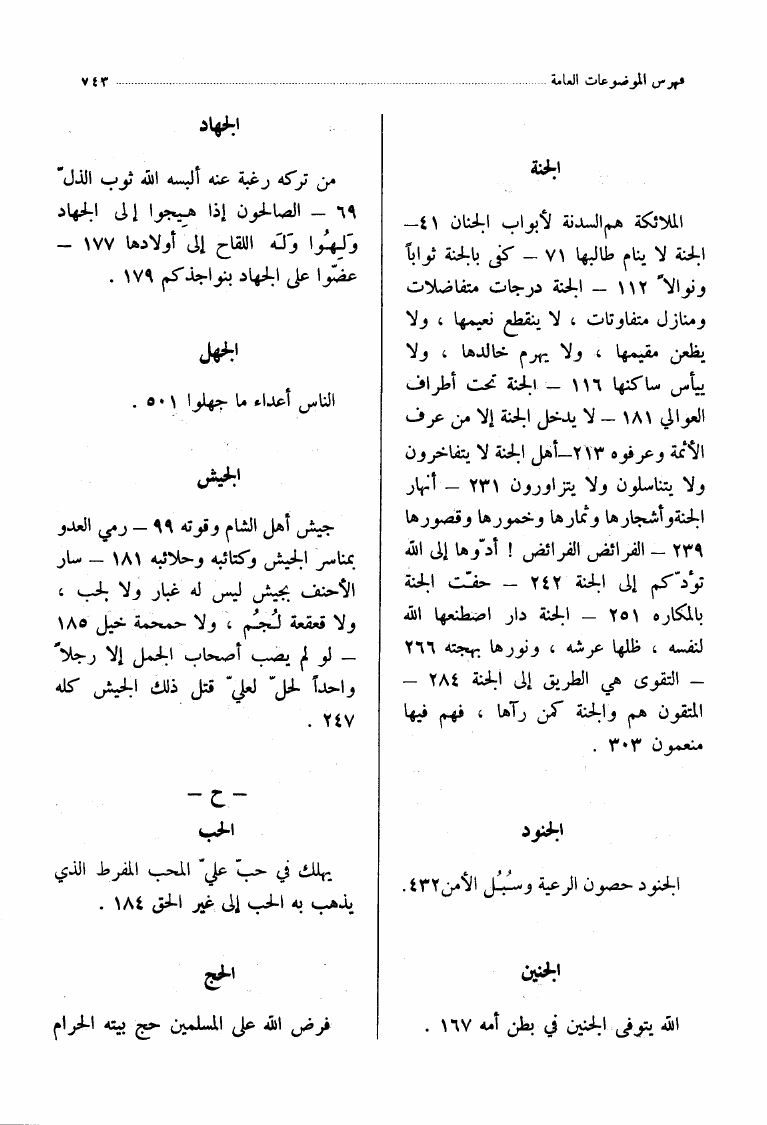 فهرس الموضوعات العامة ........ ٧٤٣
الجنة
الملائكة هم السدنة لأبواب الجنان ٤١ –
الجنة لا ينام طالبها ٧١ – كفى بالجنة ثواباً
ونوالاً ١١٢ – الجنة درجات متفاضلات
ومنازل متفاوتات ، لا ينقطع نعيمها ، ولا
يظعن مقيمها ، ولا يهرم خالدها ، ولا
ييأس ساكنها ١١٦ – الجنة تحت أطراف
العوالي ١٨١ – لا يدخل الجنة إلا من عرف
الأئمة وعرفوه ٢١٣ – أهل الجنة لا يتفاخرون
ولا يتناسلون ولا يتزاورون ٢٣١ – أنهار
الجنة وأشجارها وثمارها وخمورها وقصورها
٢٣٩ – الفرائض الفرائض ! أدّوها إلى الله
تؤدّكم إلى الجنة ٢٤٢ – حفّت الجنة
بالمكاره ٢٥١ – الجنة دار اصطنعها الله
لنفسه ، ظلها عرشه ، ونورها بهجته ٢٦٦
– التقوى هي الطريق إلى الجنة ٢٨٤ –
المتقون هم والجنة كمن رآها ، فهم فيها
منعمون ٣٠٣ .
الجنود
الجنود حصون الرعية وسُبُل الأمن ٤٣٢ .
الجنين
الله يتوفى الجنين في بطن أمه ١٦٧ .
الجهاد
من تركه رغبة عنه ألبسه الله ثوب الذلّ
٦٩ – الصالحون إذا هيجوا إلى الجهاد
وَلِهُوا وَلَه اللقاح إلى أولادها ١٧٧ –
عضّوا على الجهاد بنواجذكم ١٧٩ .
الجهل
الناس أعداء ما جهلوا ٥٠١ .
الجيش
جيش أهل الشام وقوته ٩٩ – رمي العدو
بمناسر الجيش وكتائبه وحلائبه ١٨١ – سار
الأحنف بجيش ليس له غبار ولا لجب ،
ولا قعقعة لُجُم ، ولا حمحمة خيل ١٨٥
– لو لم يصب أصحاب الجمل إلا رجلاً
واحداً لحلّ لعليّ قتل ذلك الجيش كله
٢٤٧ .
– ح –
الحب
يهلك في حبّ عليّ المحب المفرط الذي
يذهب به الحب إلى غير الحق ١٨٤ .
الحج
فرض الله على المسلمين حج بيته الحرام